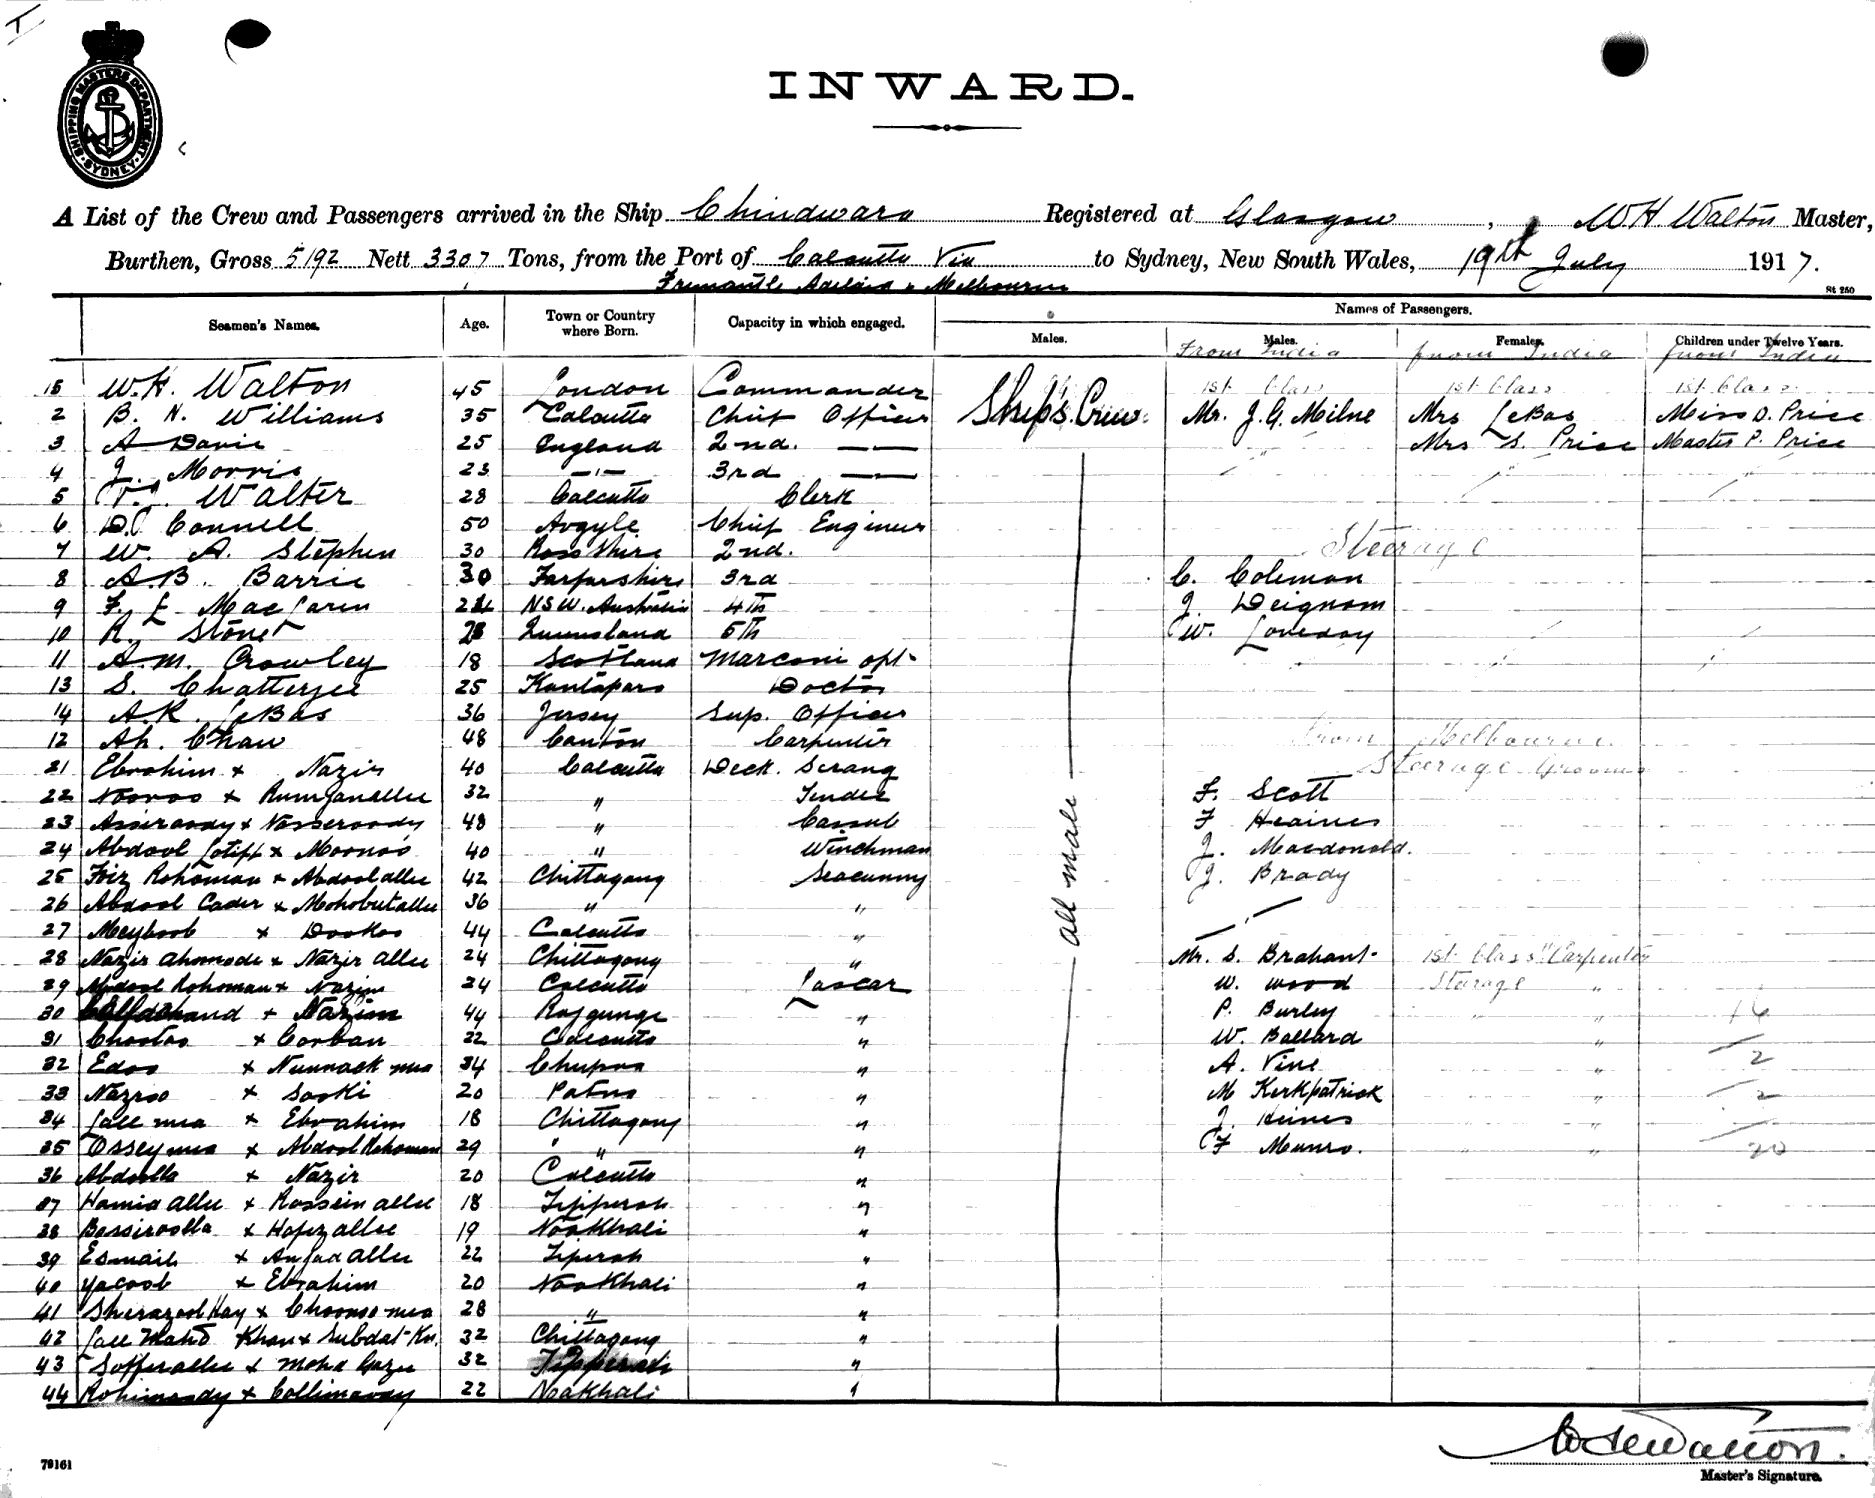 SHIPPING MASTERS DEPARTMENT SYDNEY
INWARD.
A List of the Crew and Passengers arrived in the Ship Chindwara Registered at Glasgow, W H Walton Master,
Burthen, Gross 5192 Nett 3307 Tons, from the Port of Calcutta Via to Sydney, New South Wales, 19th July 1917.
Fremantle Adelaid & Melbourne
St 250
Seamen's Names. Age. Town or Country where Born. Capacity in which engaged. Names of Passengers.
Males. Males. Females. Children under Twelve Years.
From India from India from India
W.H. Walton 45 London Commander 1st Class 1st Class 1st Class
2 B. N. Williams 35 Calcutta Chief Officer Ship's Crew. Mr. J. G. Milne Mrs LeBas Miss D. Price
3 A Davie 25 England 2nd. — Mrs S. Price Master P. Price
4 J. Morris 23 —"— 3rd —
5 Walter 28 Calcutta Clerk
6 D. Connell 50 Argyle Chief Engineer
7 W. A. Stephen 30 Rosshire 2nd. Steerage
8 A. B. Barrie 30 Farfarshire 3rd C. Coleman
9 F. L MacLaren NSW. Australia 4th J. Deignam
10 R. Stone Queensland 5th W. Loveday
11 A. M. Crowley 18 Scotland Marconi opt.
13 S. Chatterjee 25 Kantapara Doctor
14 A. R. LeBas 36 Jersey Sup. Officer
12 Ah. Chaw 48 Canton Carpenter From Melbourne.
21 Ebrahim x Nazir 40 Calcutta Deck. Serang Steerage Grooms
22 Nooroo x Rumjanallee 32 " Tendel F. Scott
23 Assiroody x Nasseroody 48 " Cassub F Heaines
24 Abdool Lotiff x Moonoo 40 " Winchman J. Macdonald.
25 Foiz Rohoman x Abdool allee 42 Chittagong Seacunny J. Brady
26 Abdool Cader x Mohobutallee 36 " "
27 Meyboob x Dookoo 44 Calcutta "
28 Nazir ahomode x Nazir allee 24 Chittagong " Mr. S. Brahant 1st Class "Carpenter
29 Abdool Rohoman x Nazim 24 Calcutta Lascar W. Wood Steerage "
30 x Nazim 44 Rajgunge " P. Burley " 16
31 Chootoo x Corban 22 Calcutta " W. Ballard "
32 Edoo x Nunnack mea 34 Chupra " A. Vine " 2
33 Nazroo x Sooki 20 Patna " M Kerkpatrick " 2
34 Lall mea x Ebrahim 18 Chittagong " J. Heines "
35 Ossey mea x Abdool Rohoman 29 " " F Munro. " 20
36 Abdoolla x Nazir 20 Calcutta "
37 Hamid allee x Rossein allee 18 Tipperah "
38 Bassiroolla x Hafiz allee 19 Nookhali "
39 Esmail x Amjad allee 22 Tiperah "
40 Yacoob x Ebrahim 20 Nookhali "
41 Sherazool Hay x Choonoo mea 28 " "
42 Lall Mahd Khan x Subdat Kn. 32 Chittagong "
43 Sofferallee x Mohd Gazee 32 Tipperah "
44 Rohimoody x Collimoody 22 Noakhali "
79161
W H Walton.
Master's Signature.